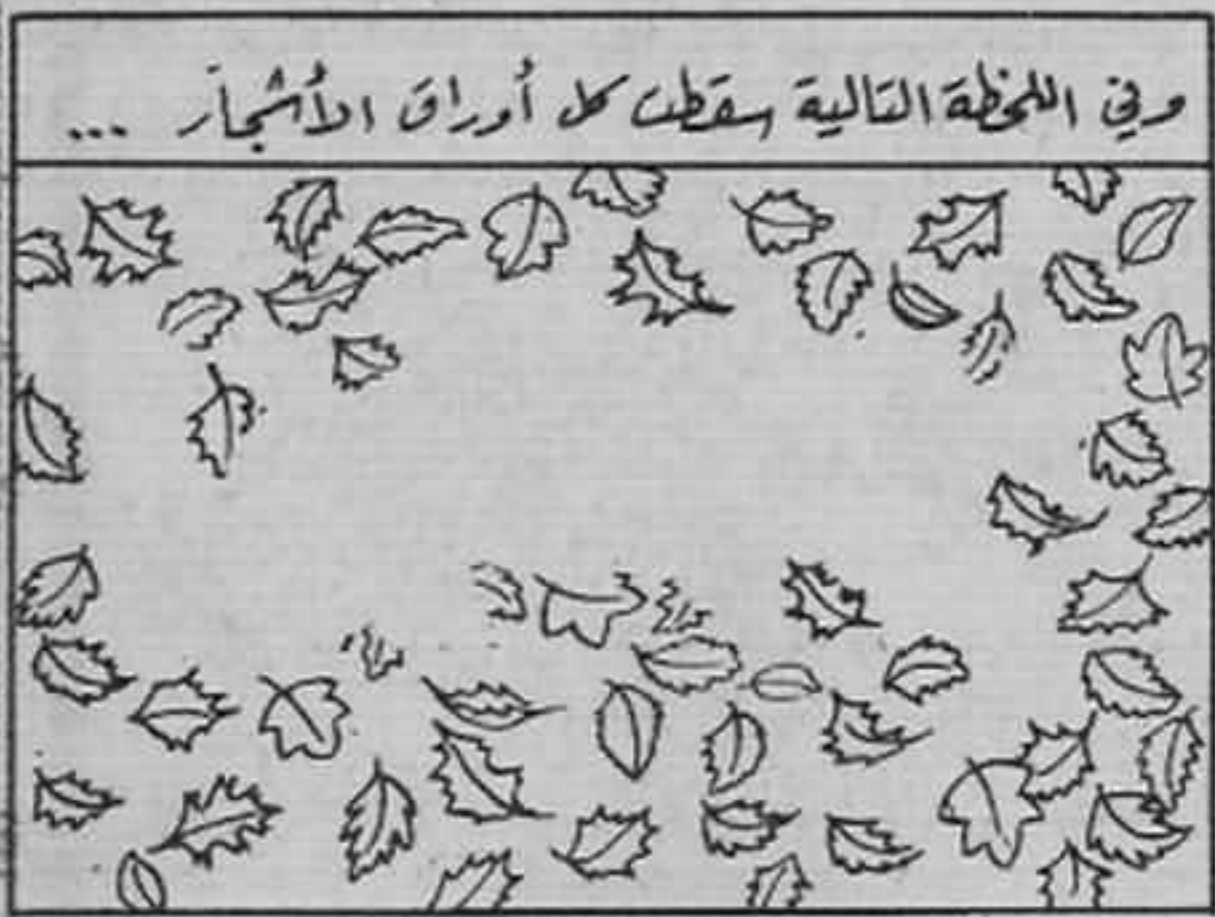 وفي اللحظة التالية سقطت كل أوراق الأشجار ...